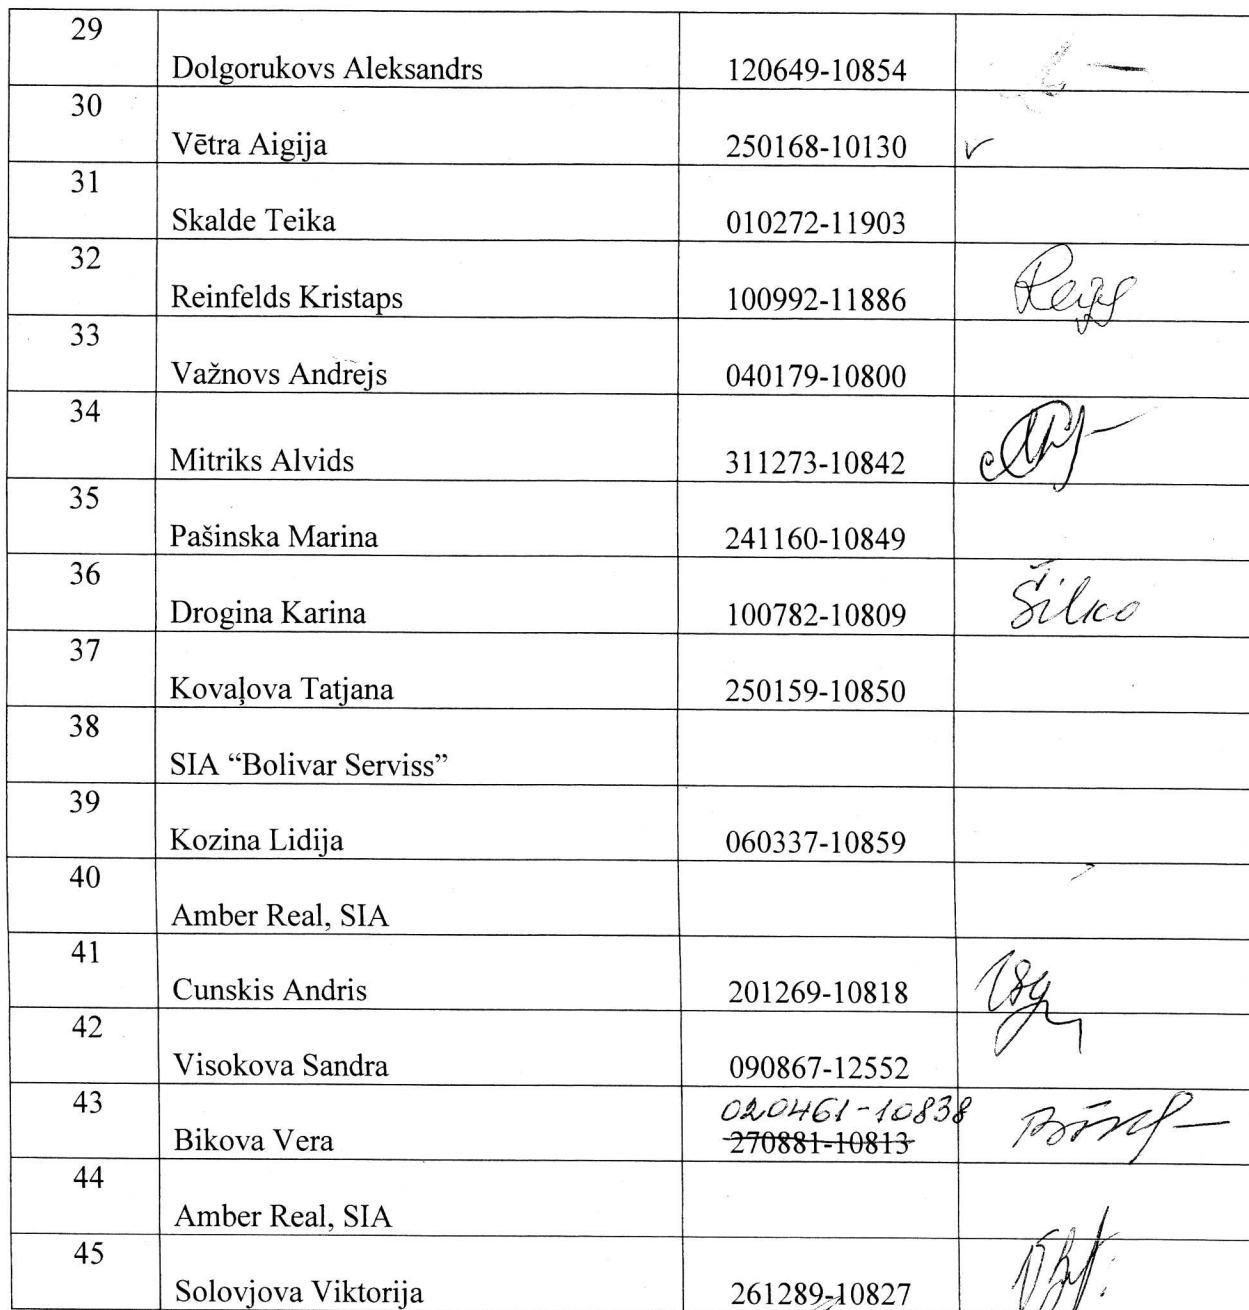 29
Dolgorukovs Aleksandrs 120649-10854
30
Vētra Aigija 250168-10130 v
31
Skalde Teika 010272-11903
32
Reinfelds Kristaps 100992-11886
33
Važnovs Andrejs 040179-10800
34
Mitriks Alvids 311273-10842
35
Pašinska Marina 241160-10849
36
Drogina Karina 100782-10809 Šilko
37
Kovaļova Tatjana 250159-10850
38
SIA “Bolivar Serviss”
39
Kozina Lidija 060337-10859
40
Amber Real, SIA
41
Cunskis Andris 201269-10818
42
Visokova Sandra 090867-12552
43 020461-10838
Bikova Vera 270881-10813
44
Amber Real, SIA
45
Solovjova Viktorija 261289-10827